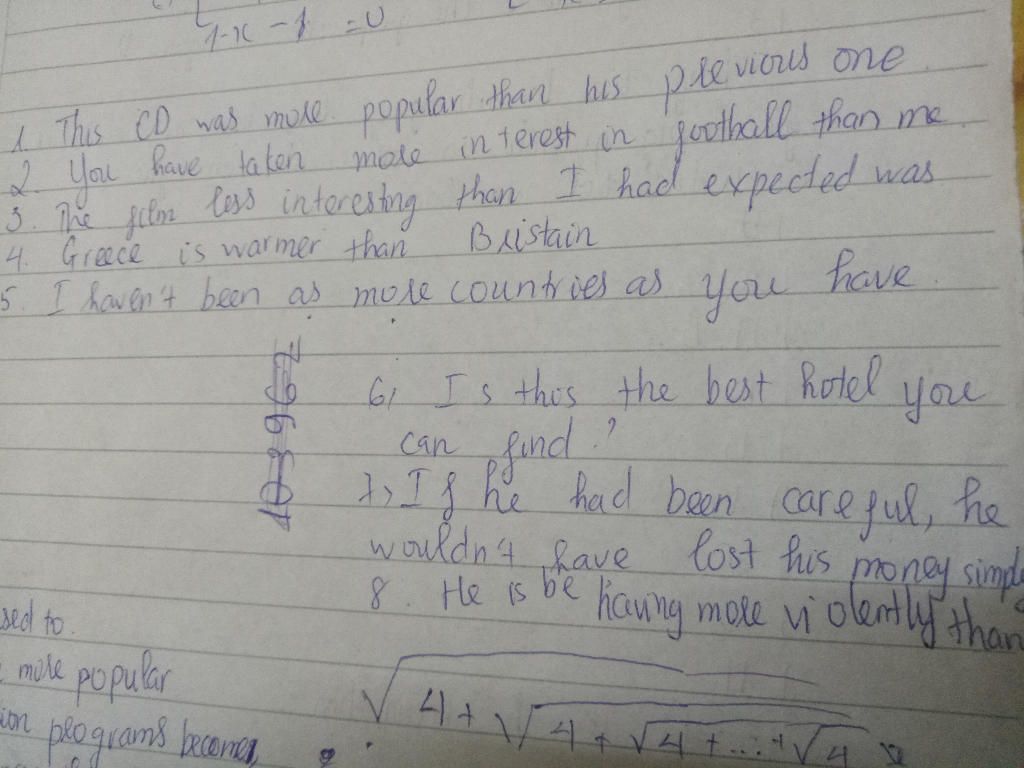 1-x - 1 = 0
1 This CD was more popular than his previous one
2. You have taken more interest in football than me
3. The film less interesting than I had expected was
4. Greece is warmer than Bristain
5. I haven't been as more countries as you have.
6, Is this the best hotel you
can find ?
7, If he had been careful, he
wouldn't have lost his money simply
8. He is be having more violently than
sed to.
more popular
ion programs becomes,
√4 + √4 + √4 + ... + √4